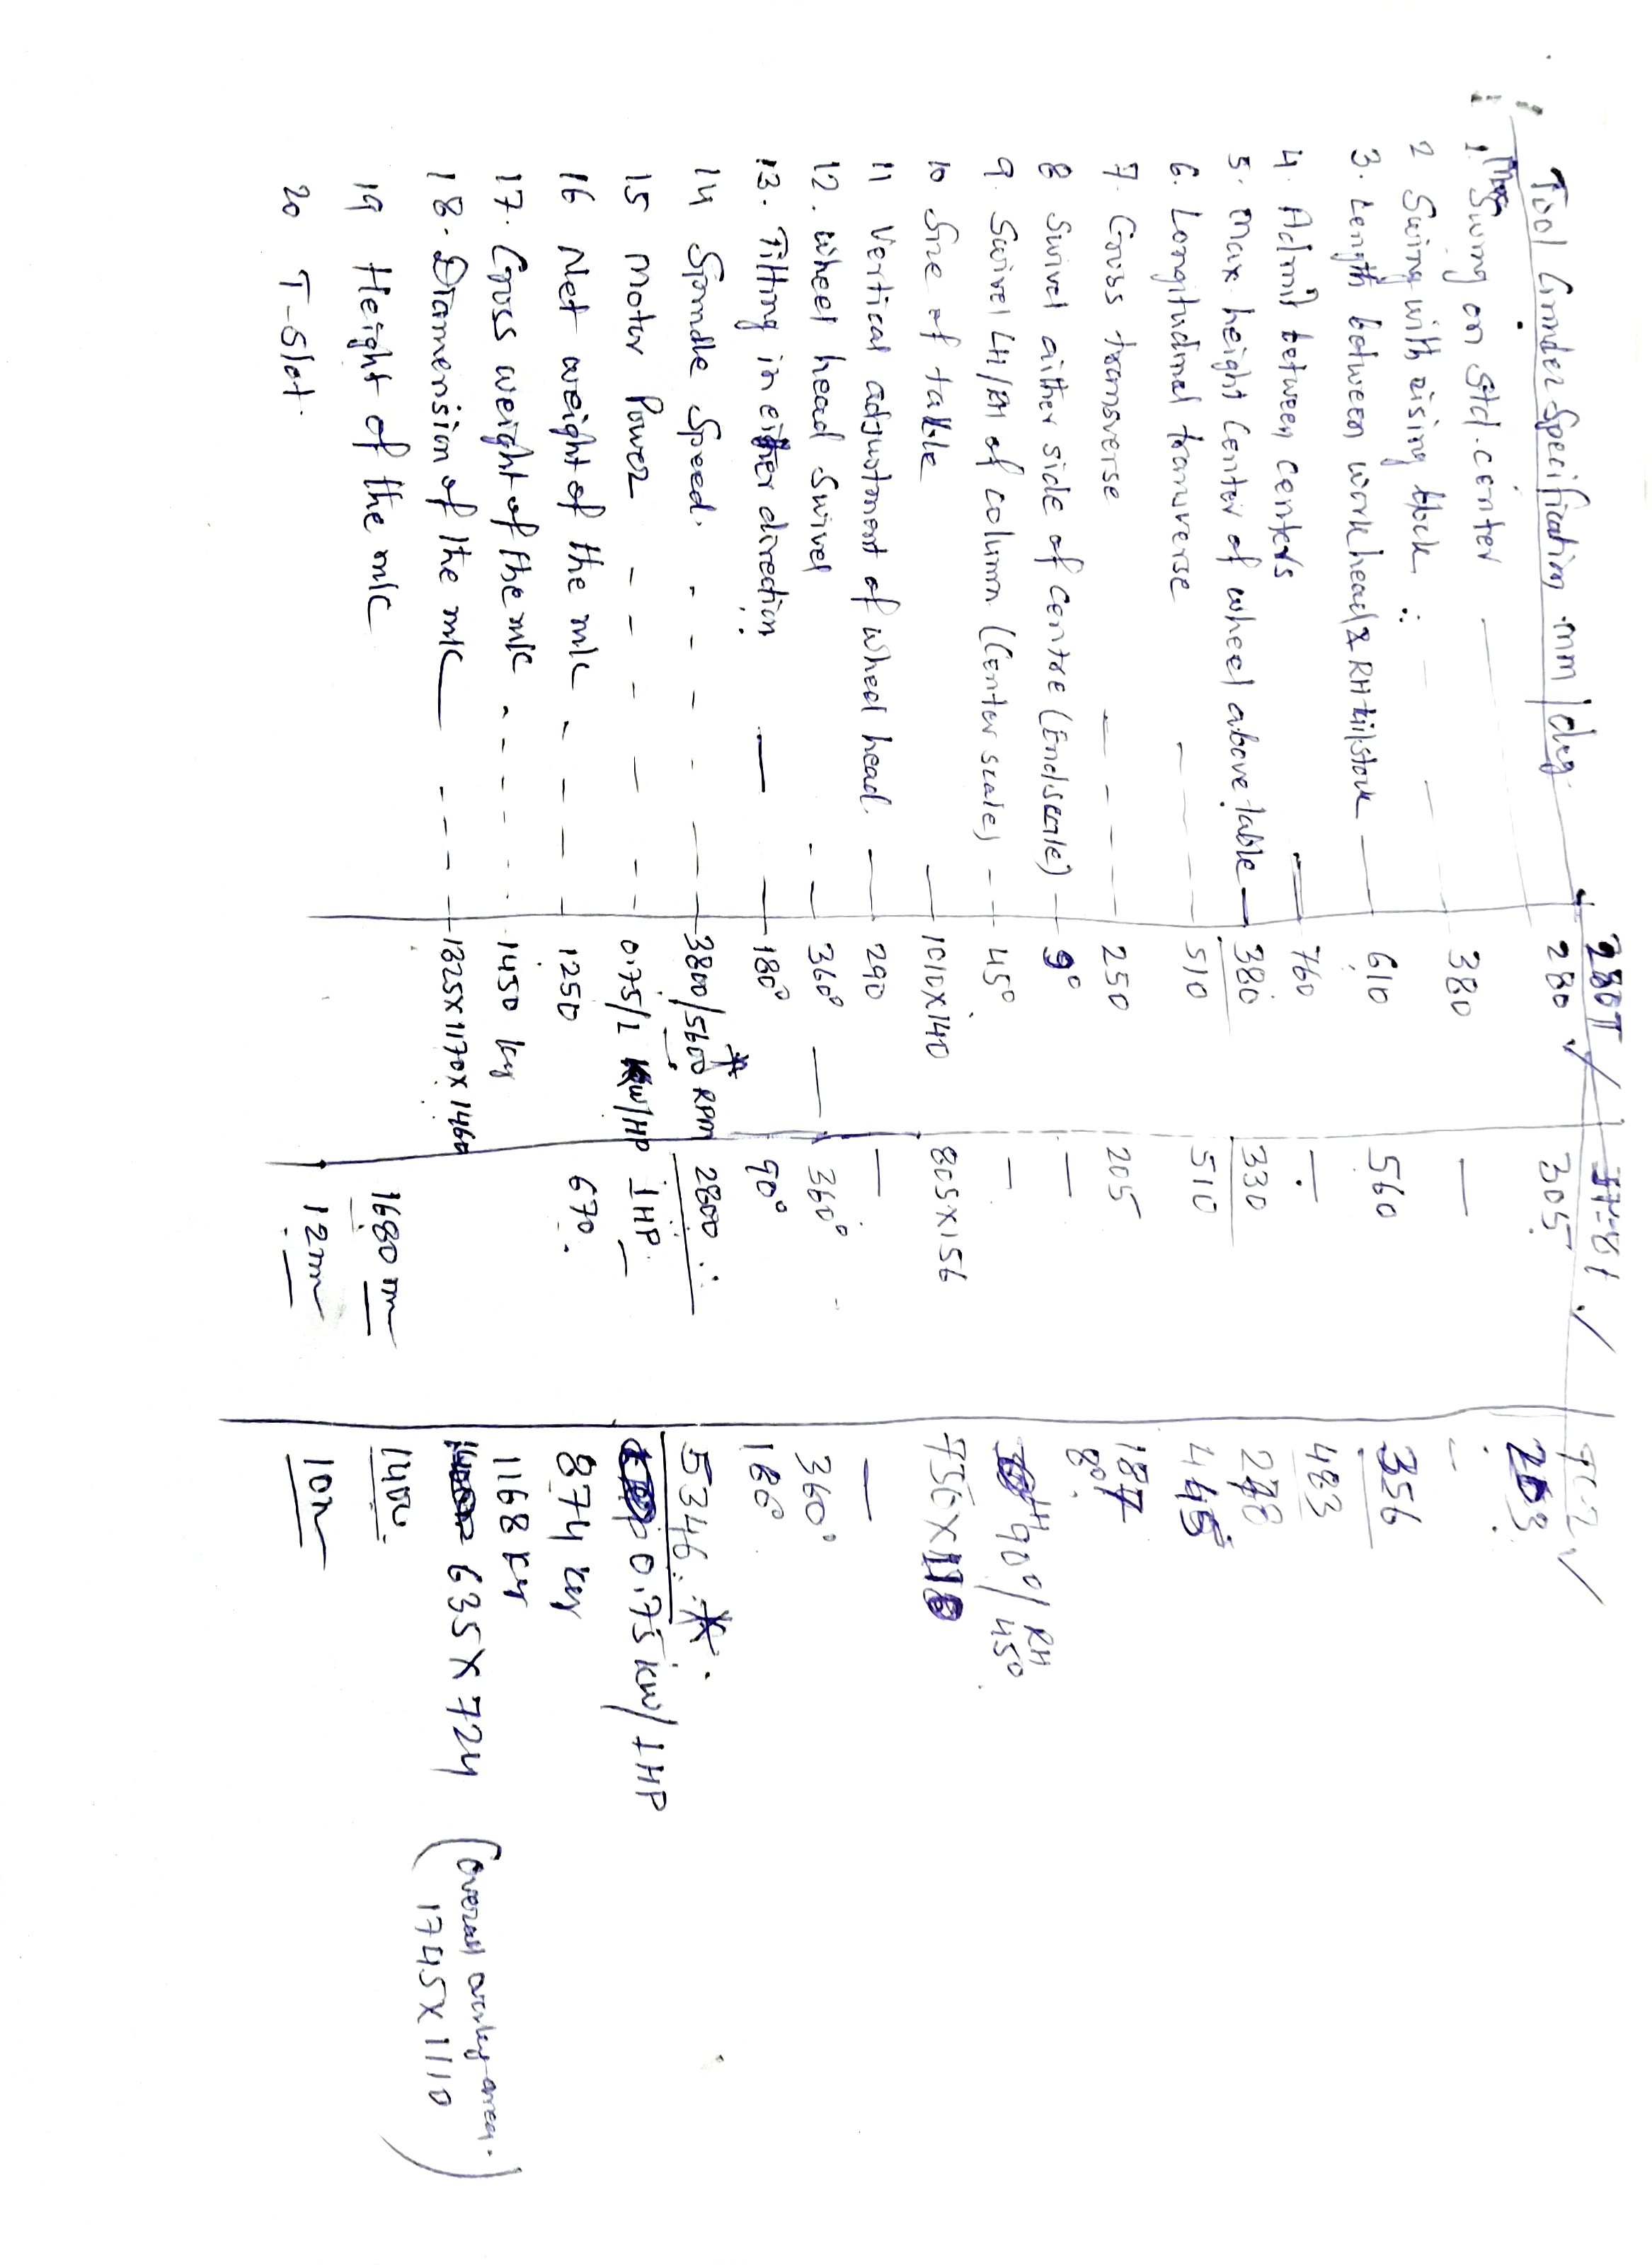 Tool Grinder Specification mm/deg. 280T JT-81 TC-2
1. Max Swing on std. center 280 305 263
2 Swing with rising block 380 —
3. Length between work head & RH tailstock — 610 560 356
4. Admit between centers — 760 — 483
5. Max height center of wheel above table — 380 330 278
6. Longitudinal transverse 510 510 445
7. Cross transverse 250 205 187
8 Swivel aither side of centre (End scale) — 9° — 8°
9. Swivel LH/RH of column (center scale) — 45° — LH 90°/RH 45°
10 Size of table — 1010x140 805x156 750x
11 Vertical adjustment of wheel head. — 290 — —
12. wheel head Swivel — 360° — 360° 360°
13. Tilting in either direction — 180° 90° 180°
14 Spindle Speed. — 3800/5600 RPM * 2800 5346. *
15 Motor Power — 0.75/1 KW/HP 1 HP. 0.75 KW/1HP
16 Net weight of the m/c — 1250 670. 874 kg
17. Gross weight of the m/c — 1450 kg 1168 kg
18. Diamension of the m/c — 1825x1170x1460 635 X 724 (overall working area. 1745x1110)
19 Height of the m/c 1680 m
20 T-Slot. 12m 10m